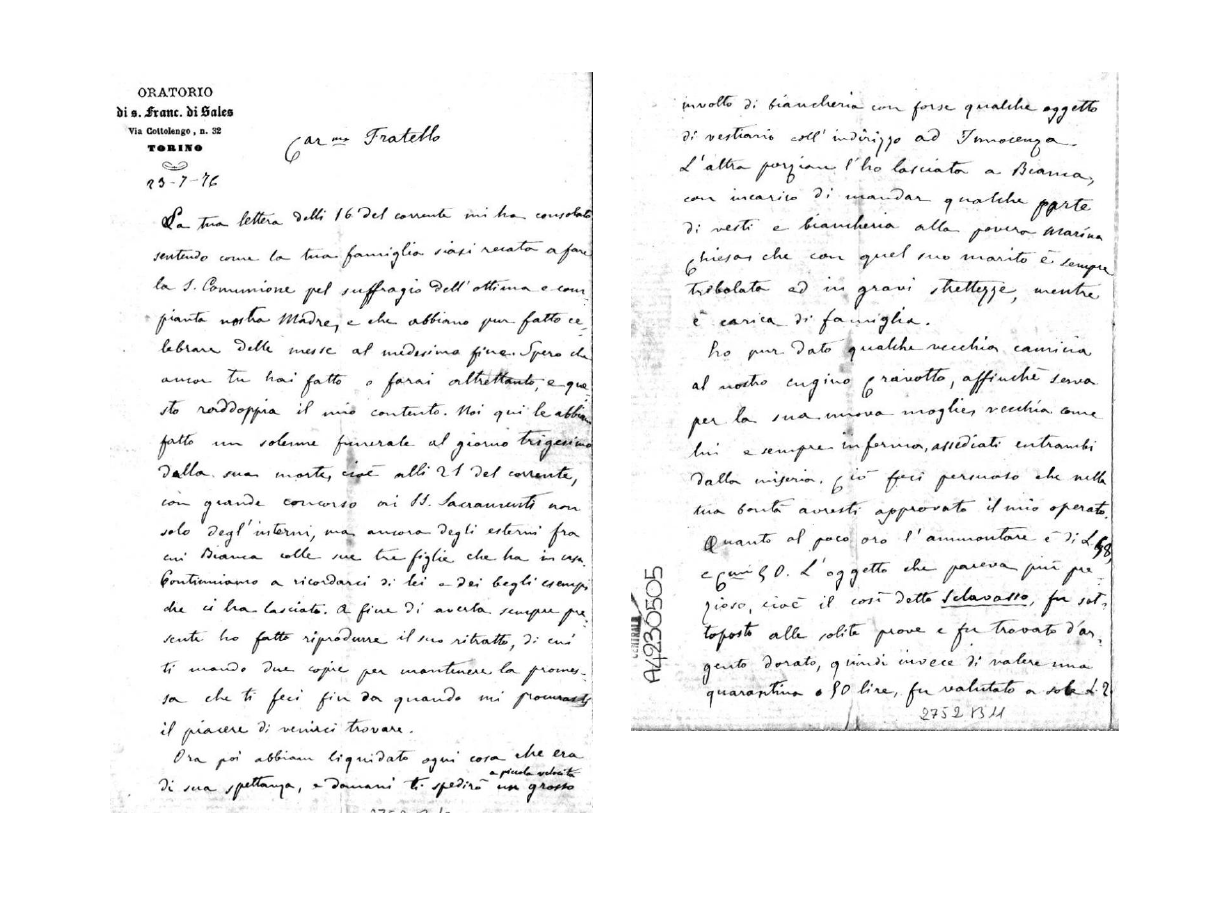 ORATORIO
di s. Franc. di Sales
Via Cottolengo, n. 32
TORINO
23-7-76
Car mo Fratello
La tua lettera delli 16 del corrente mi ha consolato
sentendo come la tua famiglia siasi recata a fare
la S. Comunione pel suffragio dell'ottima e com-
pianta nostra Madre, e che abbiano pur fatto ce-
lebrare delle messe al medesimo fine. Spero che
ancor tu hai fatto o farai altrettanto, e que-
sto raddoppia il mio contento. Noi qui le abbiam
fatto un solenne funerale al giorno trigesimo
dalla sua morte, cioè alli 21 del corrente,
con grande concorso ai SS. Sacramenti non
solo degl'interni, ma ancora degli esterni fra
cui Bianca colle sue tre figlie che ha in casa.
Continuiamo a ricordarci di lei e dei begli esempi
che ci ha lasciato. A fine di averla sempre pre-
sente ho fatto riprodurre il suo ritratto, di cui
ti mando due copie per mantenere la promes-
sa che ti feci fin da quando mi procurasti
il piacere di venirci trovare.
Ora poi abbiam liquidato ogni cosa che era
a piccola velocità
di sua spettanza, e domani ti spedirò un grosso
involto di biancheria con forse qualche oggetto
di vestiario coll'indirizzo ad Innocenza.
L'altra porzion l'ho lasciata a Bianca,
con incarico di mandar qualche parte
di vesti e biancheria alla povera Marina
Chiesa che con quel suo marito è sempre
tribolata ed in gravi strettezze, mentre
è carica di famiglia.
Ho pur dato qualche vecchia camicia
al nostro cugino Cravotto, affinchè serva
per la sua nuova moglie, vecchia come
lui e sempre inferma, assediati entrambi
dalla miseria. Ciò feci persuaso che nella
tua bontà avresti approvato il mio operato.
Quanto al poco oro l'ammontare è di L. 68,
e 50. L'oggetto che pareva più pre-
zioso, cioè il così detto Sclavasso, fu sot-
toposto alle solite prove e fu trovato d'ar-
gento dorato, quindi invece di valere una
quarantina o 50 lire, fu valutato a sole L. 2.
2752 B11
CENTRALE
A4230505